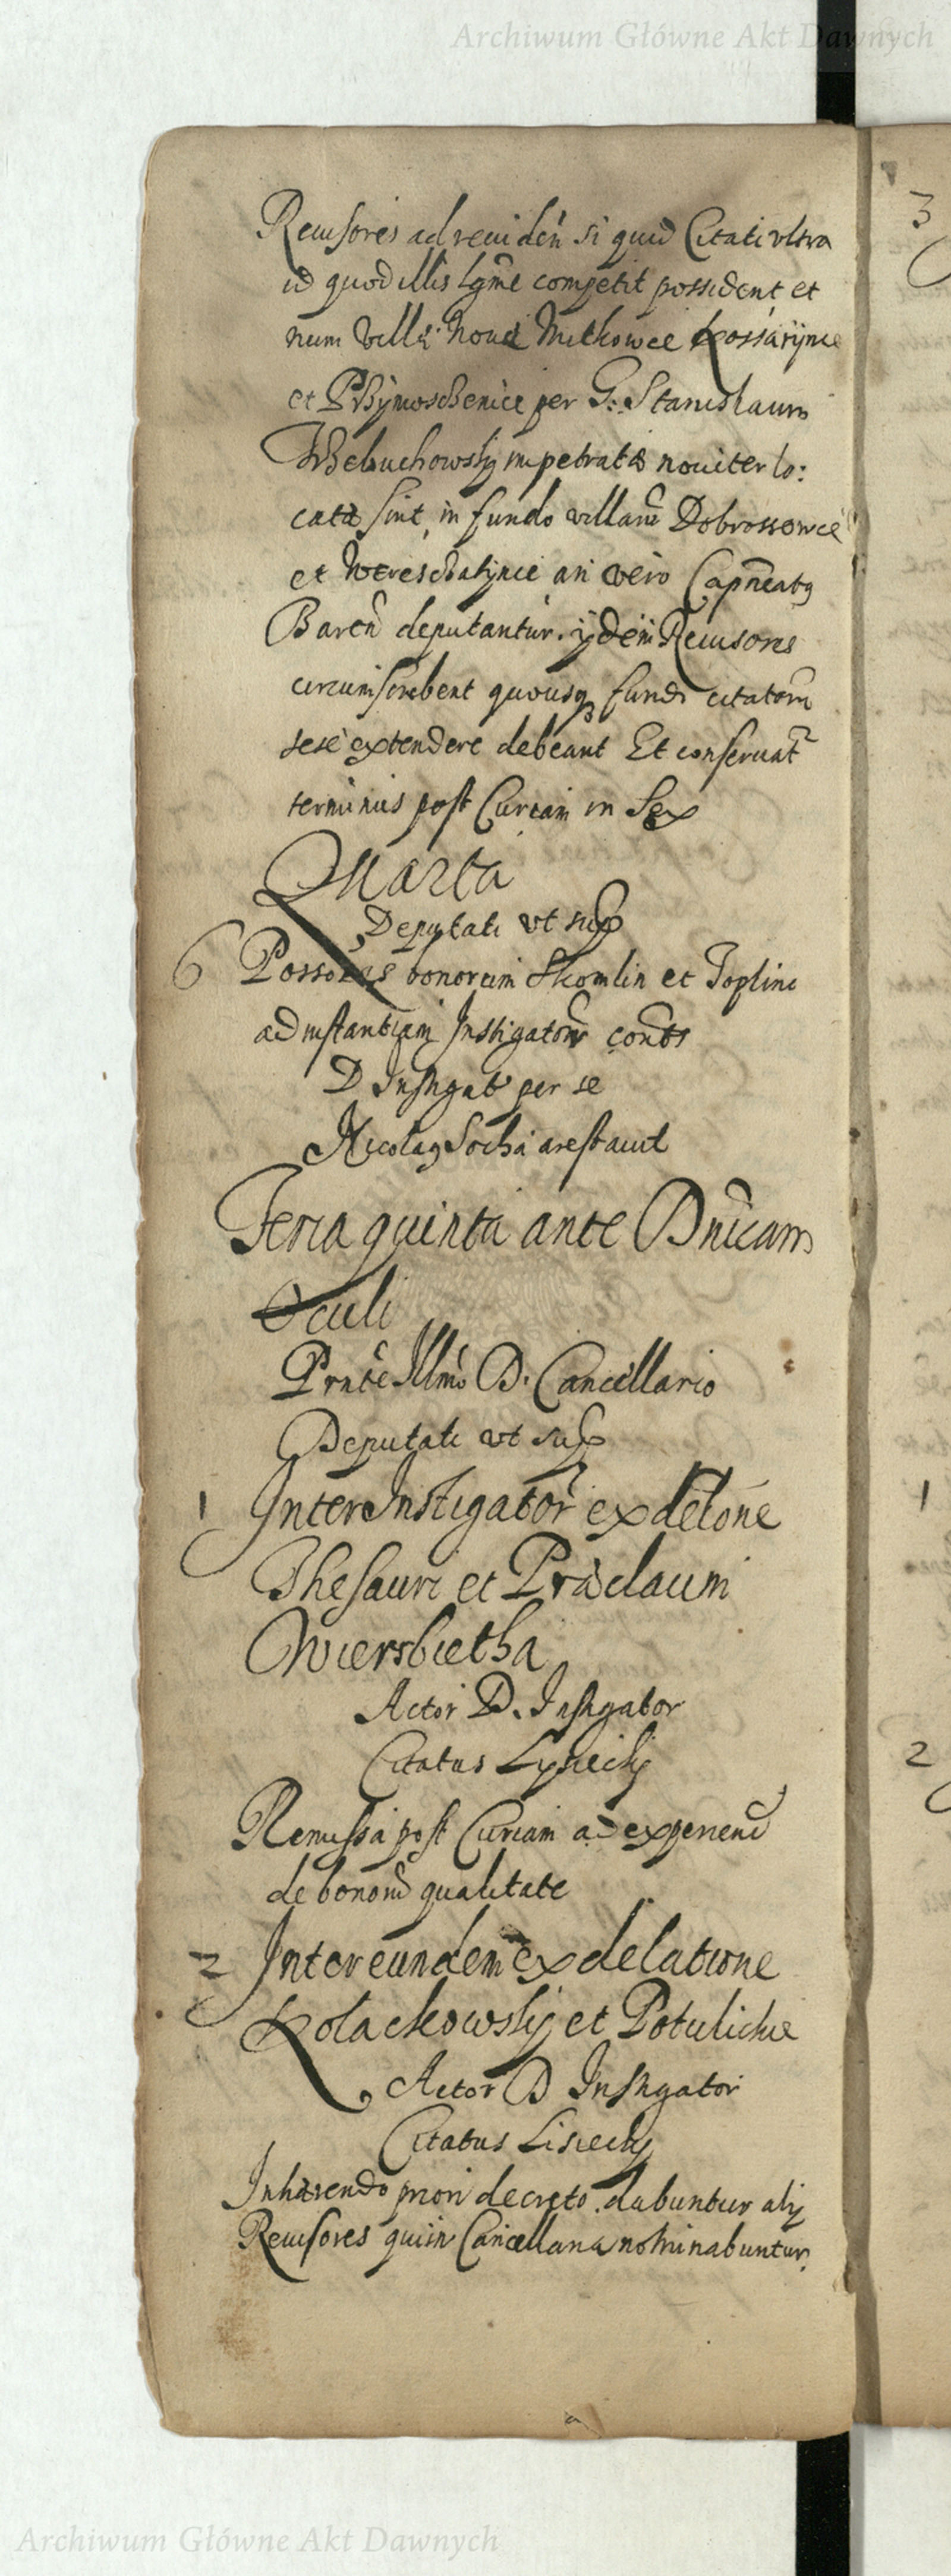 Archiwum Główne Akt Dawnych
Reuisores ad reuidēn si quid Citati vltra
id quod illis lgīme competit possident et
num villæ Noua Mitkowce Kossarÿnce
et Przÿmosczenice per G: Stanislaum
impetratæ nouiter lo:
catæ sint in fundo villarū Dobrossowce
et Wereschatÿnce an vero Capneatꝯ
Barēn deputantur. ÿdem Reuisores
circumscribent quousqꝫ fundi citatorū
sese extendere debeant Et conseruat
terminus post Curiam in Sex
Quarta
Deputati vt sup
6 Possores bonorum Skomlin et Toplin
ad instantiam Instigatorū
D Instigat per se
Nicolaꝯ Socha arestauit
Feria quinta ante Dnīcam
Oculi
Pnte Illmo D. Cancellario
Deputati vt sup
1 Inter Instigator ex delōne
Thesauri et Præclaum
Wiersbietha
Actor D. Instigator
Citatus
Remissa post Curiam ad experiend
de bonorū qualitate
2 Inter eundem ex delatione
Kolackowskÿ et Potulickie
Actor D Instigator
Citatus Lisiecky
Inhærendo priori decreto dabuntur alÿ
Reuisores qui in Cancellaria nominabuntur.
3
1
2
Archiwum Główne Akt Dawnych